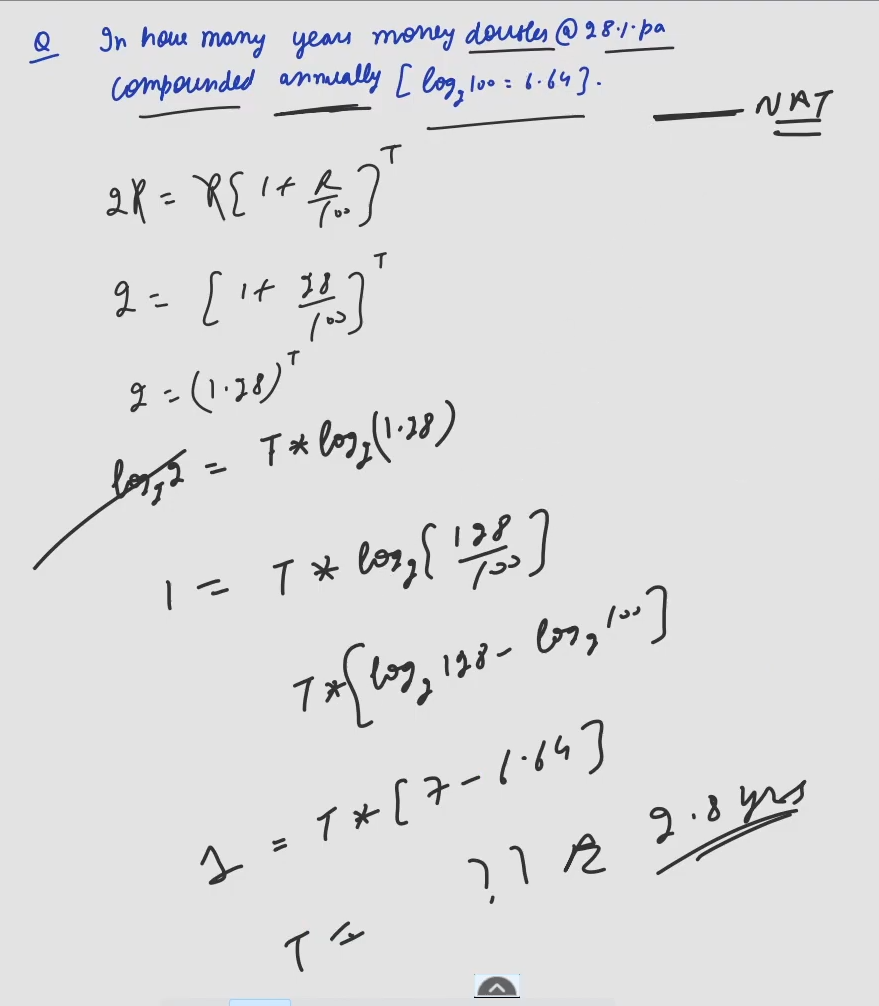 Q In how many years money doubles @ 28.1. pa
compounded annually [ log₂ 100 = 6.64].
— NAT
2P = P[ 1 + R/100 ]^T
2 = [ 1 + 28/100 ]^T
2 = (1.28)^T
log₂2 = T * log₂(1.28)
1 = T * log₂[ 128/100 ]
T * [ log₂ 128 - log₂ 100 ]
1 = T * [ 7 - 6.64 ]
2.8 yrs
T =